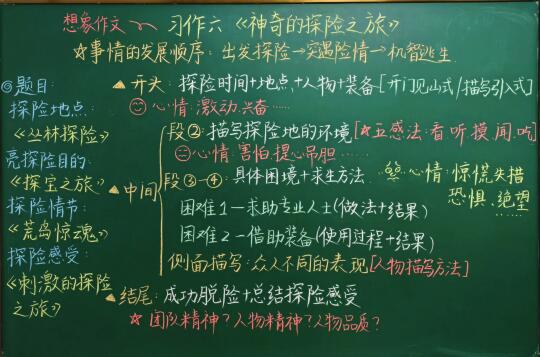 想象作文 习作六《神奇的探险之旅》
☆事情的发展顺序：出发探险→突遇险情→机智逃生
◎题目：
探险地点：
《丛林探险》
亮探险目的：
《探宝之旅》
探险情节：
《荒岛惊魂》
探险感受：
《刺激的探险
之旅》
开头：探险时间+地点+人物+装备[开门见山式/描写引入式]
心情：激动.兴奋……
中间
段②：描写探险地的环境[☆五感法：看.听.摸.闻.吃]
心情：害怕.提心吊胆……
段③—④：具体困境+求生方法.
心情：惊慌失措
恐惧.绝望……
困难1—求助专业人士(做法+结果)
困难2—借助装备(使用过程+结果)
侧面描写：众人不同的表现[人物描写方法]
结尾：成功脱险+总结探险感受
☆团队精神？人物精神？人物品质？